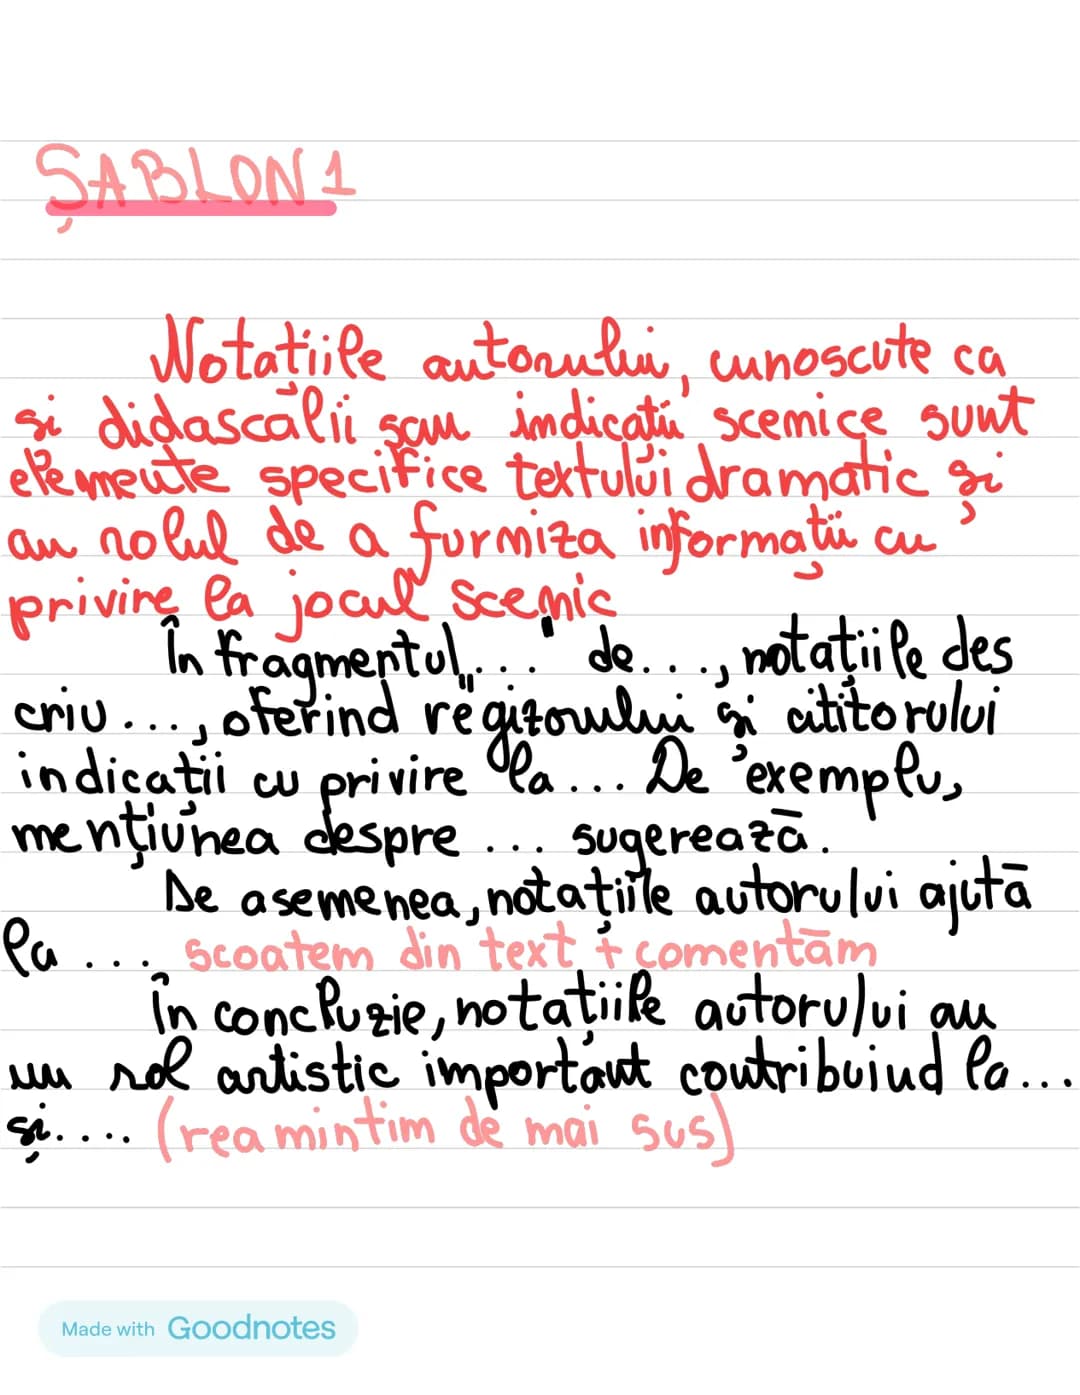 ȘABLON 1
Notațiile autorului, cunoscute ca
si didascalii sau indicații scenice sunt
elemente specifice textului dramatic și
au rolul de a furniza informații cu
privire la jocul scenic
În fragmentul „..." de..., notațiile des
criu ..., oferind regizorului și cititorului
indicații cu privire la... De exemplu,
mențiunea despre ... sugerează.
De asemenea, notațiile autorului ajută
la ... scoatem din text + comentăm
În concluzie, notațiile autorului au
un rol artistic important contribuind la...
și.... (reamintim de mai sus)
Made with Goodnotes